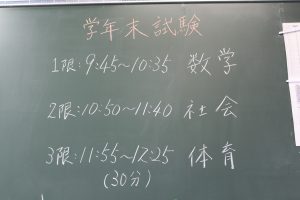 学年末試験
1限:9:45~10:35 数学
2限:10:50~11:40 社会
3限:11:55~12:25 体育
(30分)